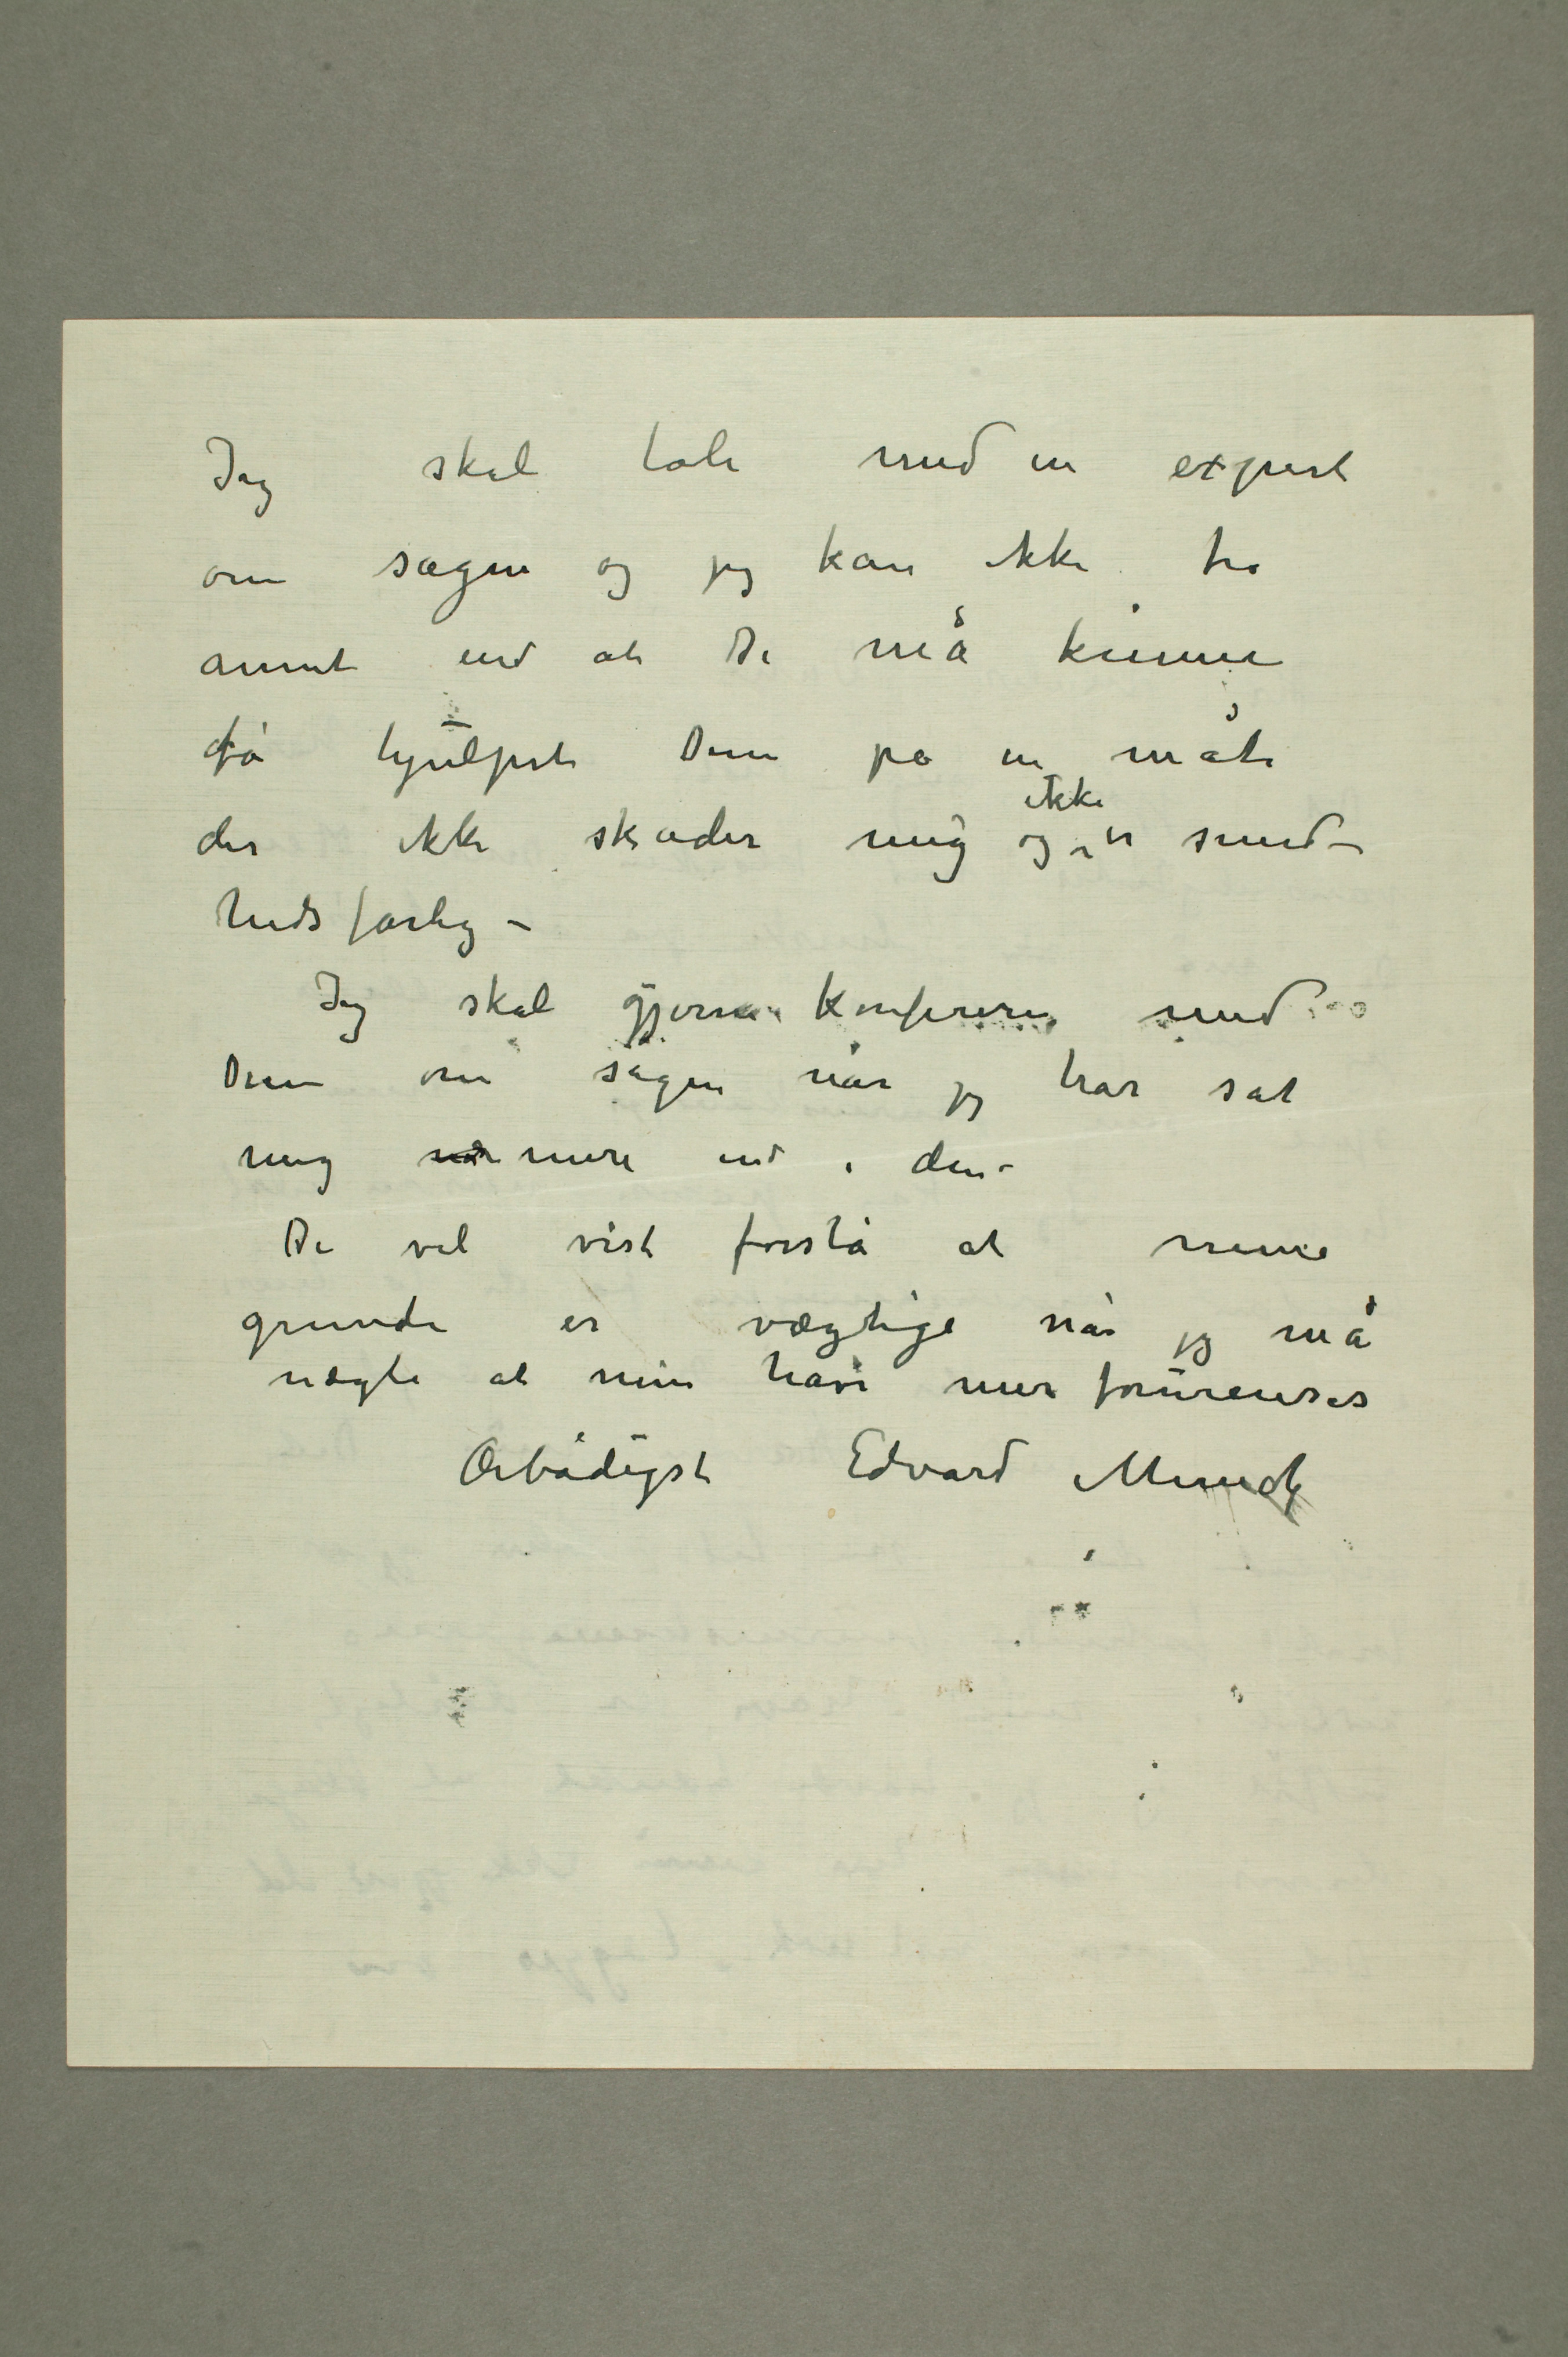 Jeg skal tale med en expert
om sagen og jeg kan ikke tro
annet end at De må kunne
få hjulpet Dem på en måte
der ikke skader mig og ikke er sund-
hedsfarlig –
Jeg skal gjerne konferere med
Dem om sagen når jeg har sat
mig mere ind i den –
De vil vist forstå at mine
grunde er vægtige når jeg må
nægte at min have mer forurenses
Ærbødigst Edvard Munch